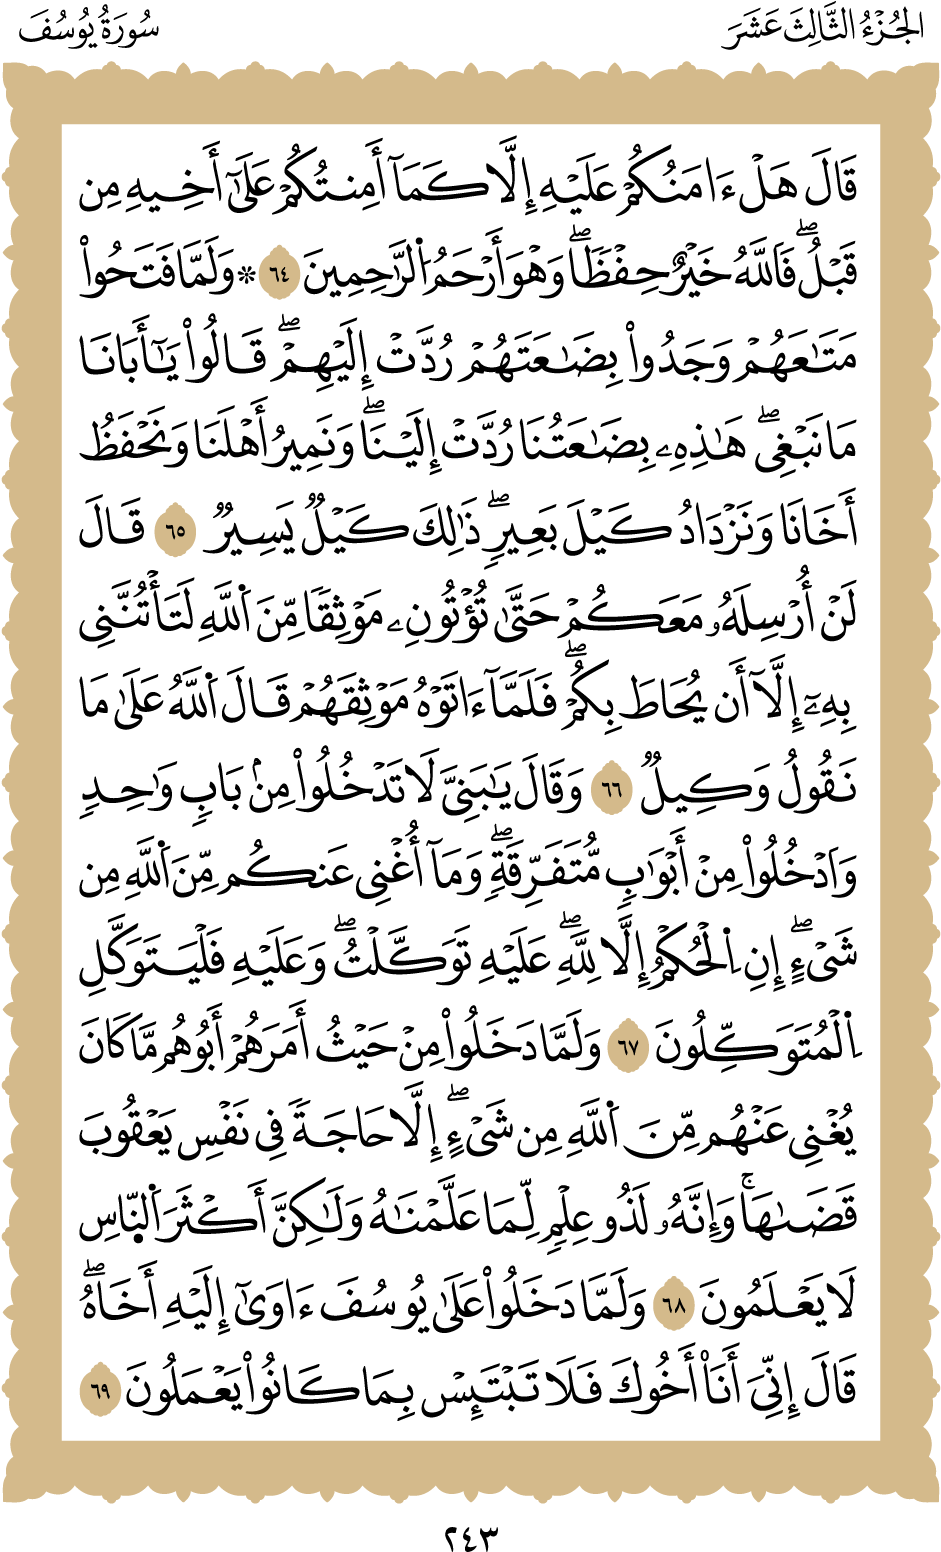 الجُزْءُ الثَّالِثَ عَشَرَ
سُورَةُ يُوسُفَ
قَالَ هَلْ ءَامَنُكُمْ عَلَيْهِ إِلَّا كَمَآ أَمِنتُكُمْ عَلَىٰٓ أَخِيهِ مِن
قَبْلُۖ فَاَللَّهُ خَيْرٌ حِفْظٗاۖ وَهْوَ أَرْحَمُ اُلرَّٰحِمِينَ ٦٤ ۞ وَلَمَّا فَتَحُواْ
مَتَٰعَهُمْ وَجَدُواْ بِضَٰعَتَهُمْ رُدَّتْ إِلَيْهِمْۖ قَالُواْ يَٰٓأَبَانَا
مَا نَبْغِيۖ هَٰذِهِۦ بِضَٰعَتُنَا رُدَّتْ إِلَيْنَاۖ وَنَمِيرُ أَهْلَنَا وَنَحْفَظُ
أَخَانَا وَنَزْدَادُ كَيْلَ بَعِيرٖۖ ذَٰلِكَ كَيْلٞ يَسِيرٞ ٦٥ قَالَ
لَنْ أُرْسِلَهُۥ مَعَكُمْ حَتَّىٰ تُؤْتُونِۦ مَوْثِقٗا مِّنَ اَللَّهِ لَتَأْتُنَّنِي
بِهِۦٓ إِلَّآ أَن يُحَاطَ بِكُمْۖ فَلَمَّآ ءَاتَوْهُ مَوْثِقَهُمْ قَالَ اَللَّهُ عَلَىٰ مَا
نَقُولُ وَكِيلٞ ٦٦ وَقَالَ يَٰبَنِيَّ لَا تَدْخُلُواْ مِنۢ بَابٖ وَٰحِدٖ
وَاَدْخُلُواْ مِنْ أَبْوَٰبٖ مُّتَفَرِّقَةٖۖ وَمَآ أُغْنِي عَنكُم مِّنَ اَللَّهِ مِن
شَيْءٍۖ إِنِ اِلْحُكْمُ إِلَّا لِلَّهِۖ عَلَيْهِ تَوَكَّلْتُۖ وَعَلَيْهِ فَلْيَتَوَكَّلِ
اِلْمُتَوَكِّلُونَ ٦٧ وَلَمَّا دَخَلُواْ مِنْ حَيْثُ أَمَرَهُمْ أَبُوهُم مَّا كَانَ
يُغْنِي عَنْهُم مِّنَ اَللَّهِ مِن شَيْءٍۖ إِلَّا حَاجَةٗ فِي نَفْسِ يَعْقُوبَ
قَضَىٰهَاۚ وَإِنَّهُۥ لَذُو عِلْمٖ لِّمَا عَلَّمْنَٰهُ وَلَٰكِنَّ أَكْثَرَ اَلنَّاسِ
لَا يَعْلَمُونَ ٦٨ وَلَمَّا دَخَلُواْ عَلَىٰ يُوسُفَ ءَاوَىٰٓ إِلَيْهِ أَخَاهُۖ
قَالَ إِنِّيَ أَنَا۠ أَخُوكَ فَلَا تَبْتَئِسْ بِمَا كَانُواْ يَعْمَلُونَ ٦٩
٢٤٣